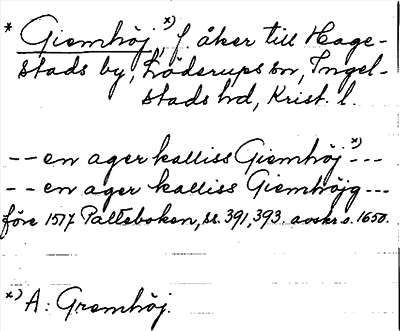 * Giemhöj,*) f. åker till Hage-
stads by, Löderups sn, Ingel-
stads hd, Krist. l.
-- en ager kalliss Giemhöj*) ---
-- en ager kalliss Giemhöjg ---
före 1517 Palteboken, ss. 391, 393. avskr. o. 1650.
*) A: Gremhöj.